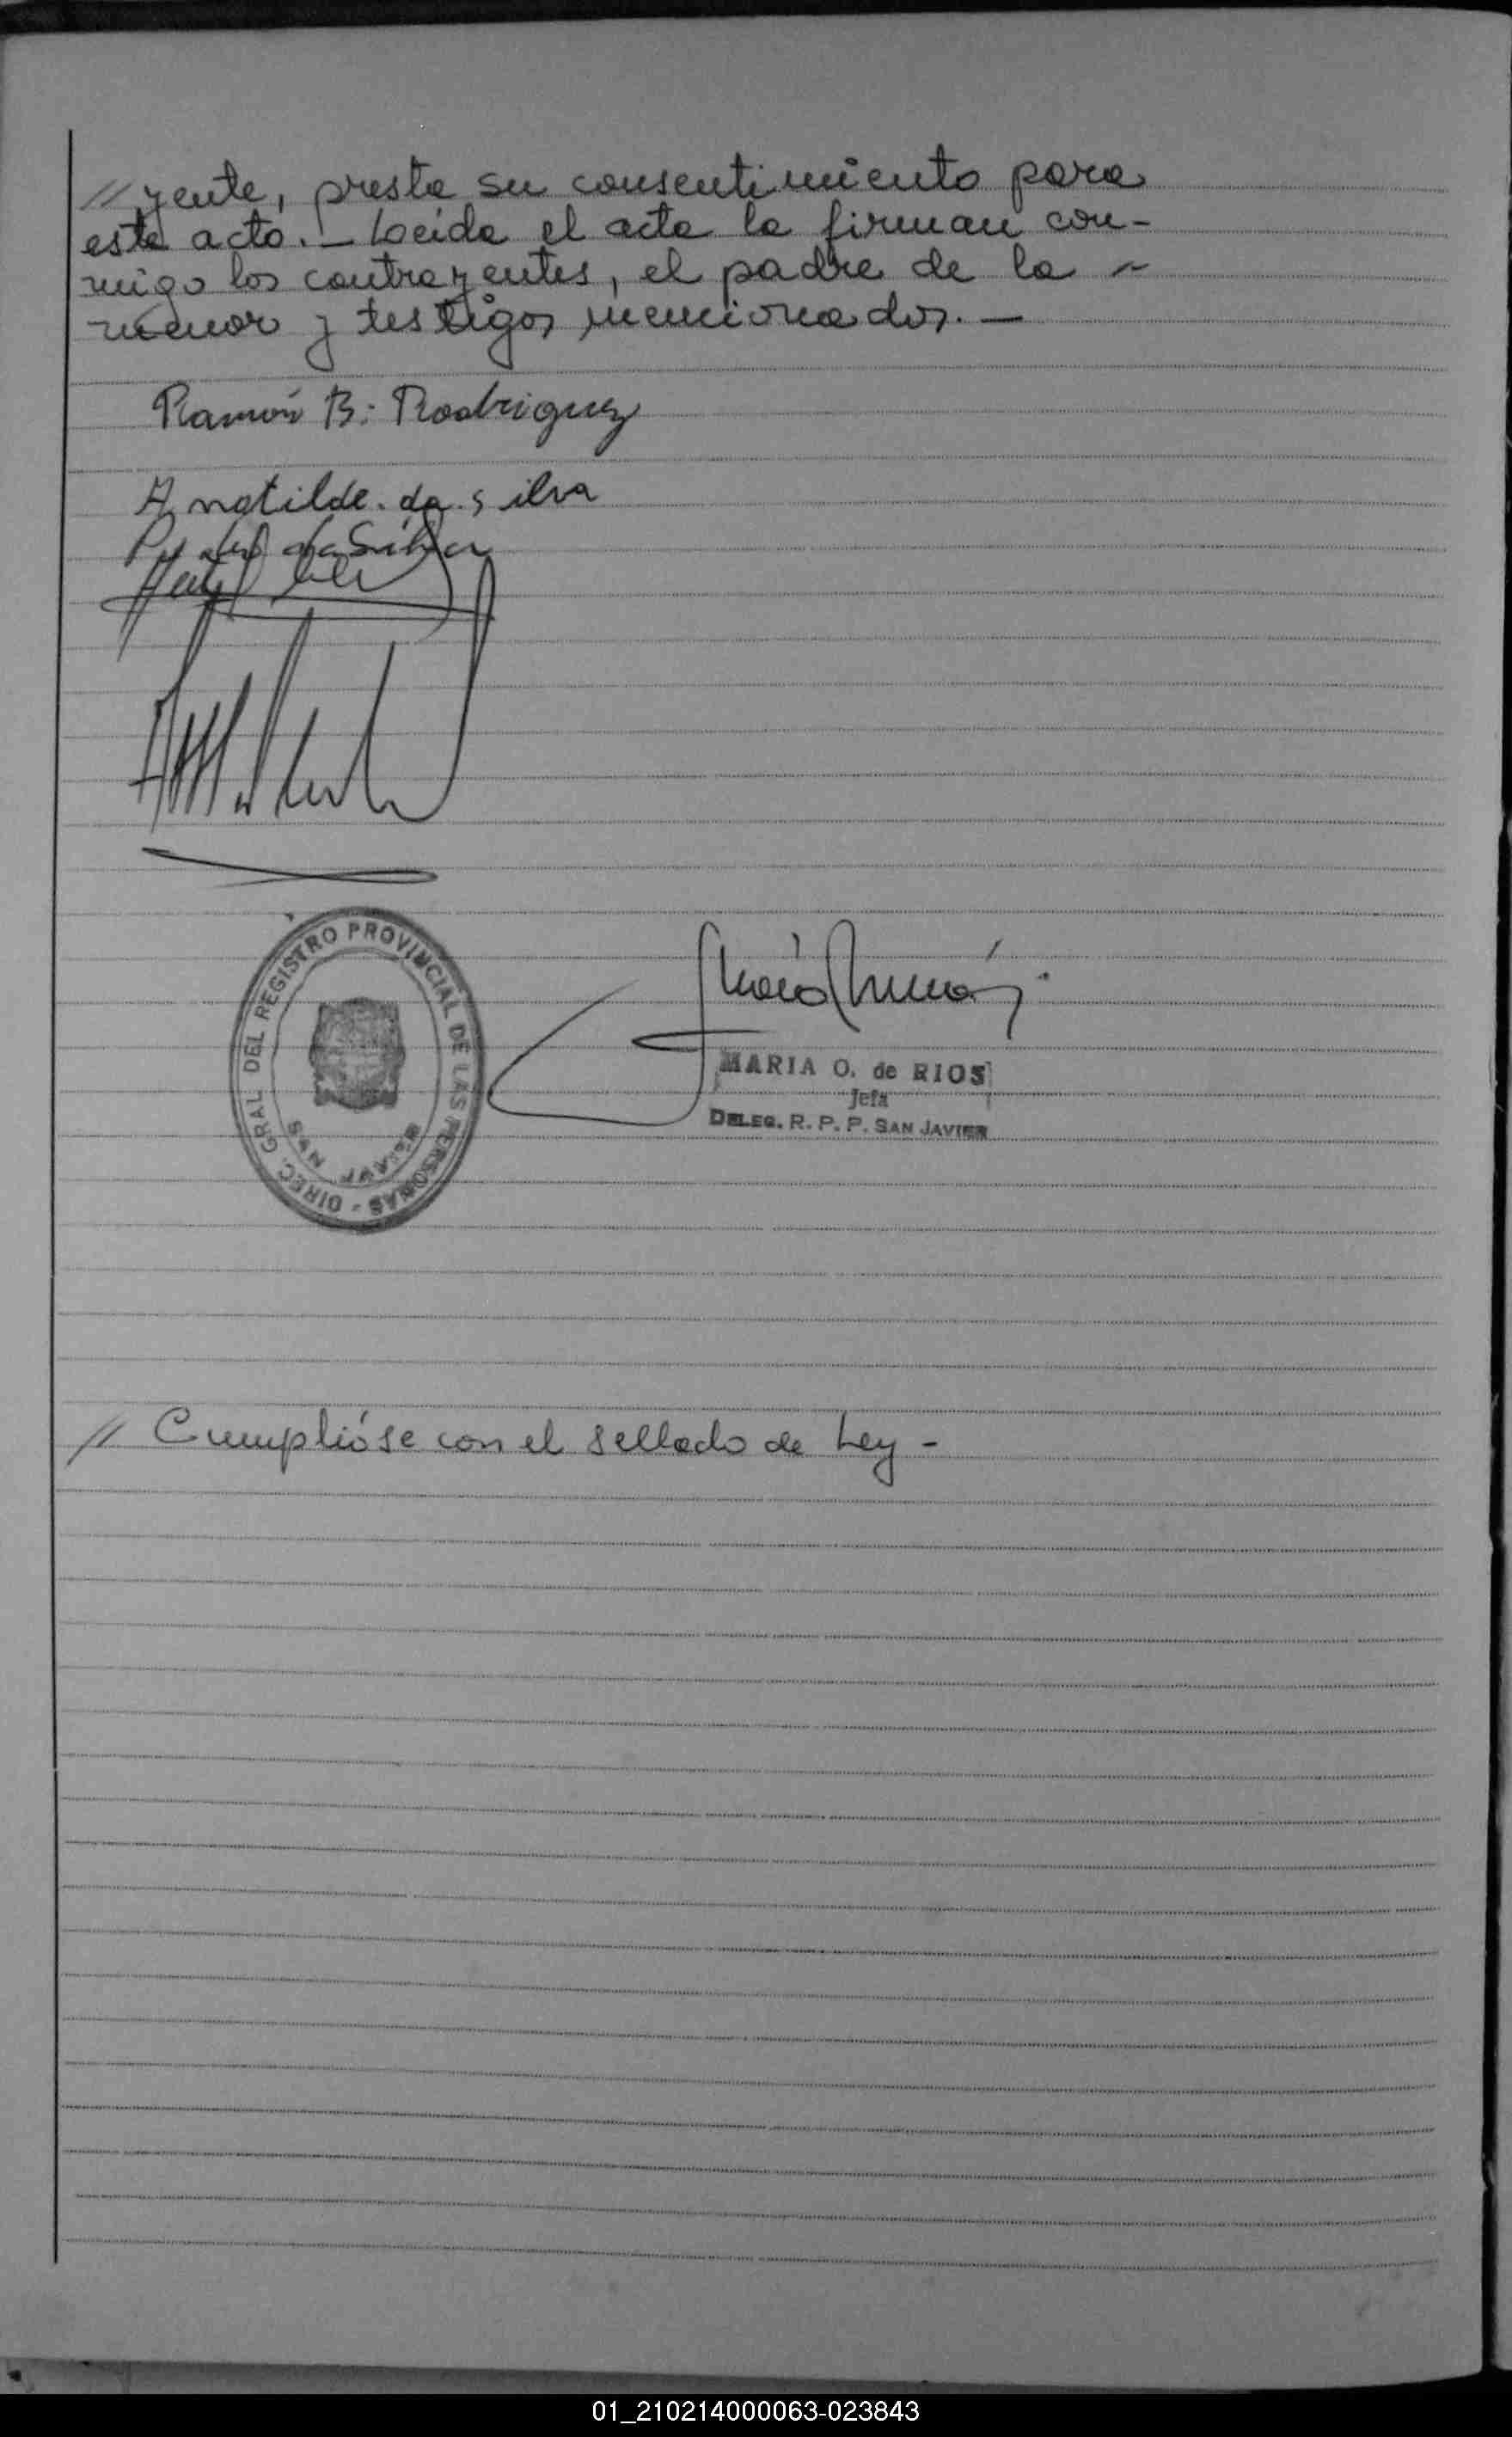 // yente, presta su consentimiento para
este acto. _ Leída el acta la firman con-
migo los contrayentes, el padre de la -
menor y testigos mencionados. _
Ramón B. Rodriguez
A matilde. da silva
da Silva
DIREC. GRAL DEL REGISTRO PROVINCIAL DE LAS PERSONAS -
SAN JAVIER
MARIA O. de RIOS
Jefa
DELEG. R. P. P. SAN JAVIER
// Cumplióse con el sellado de Ley -
01_210214000063-023843